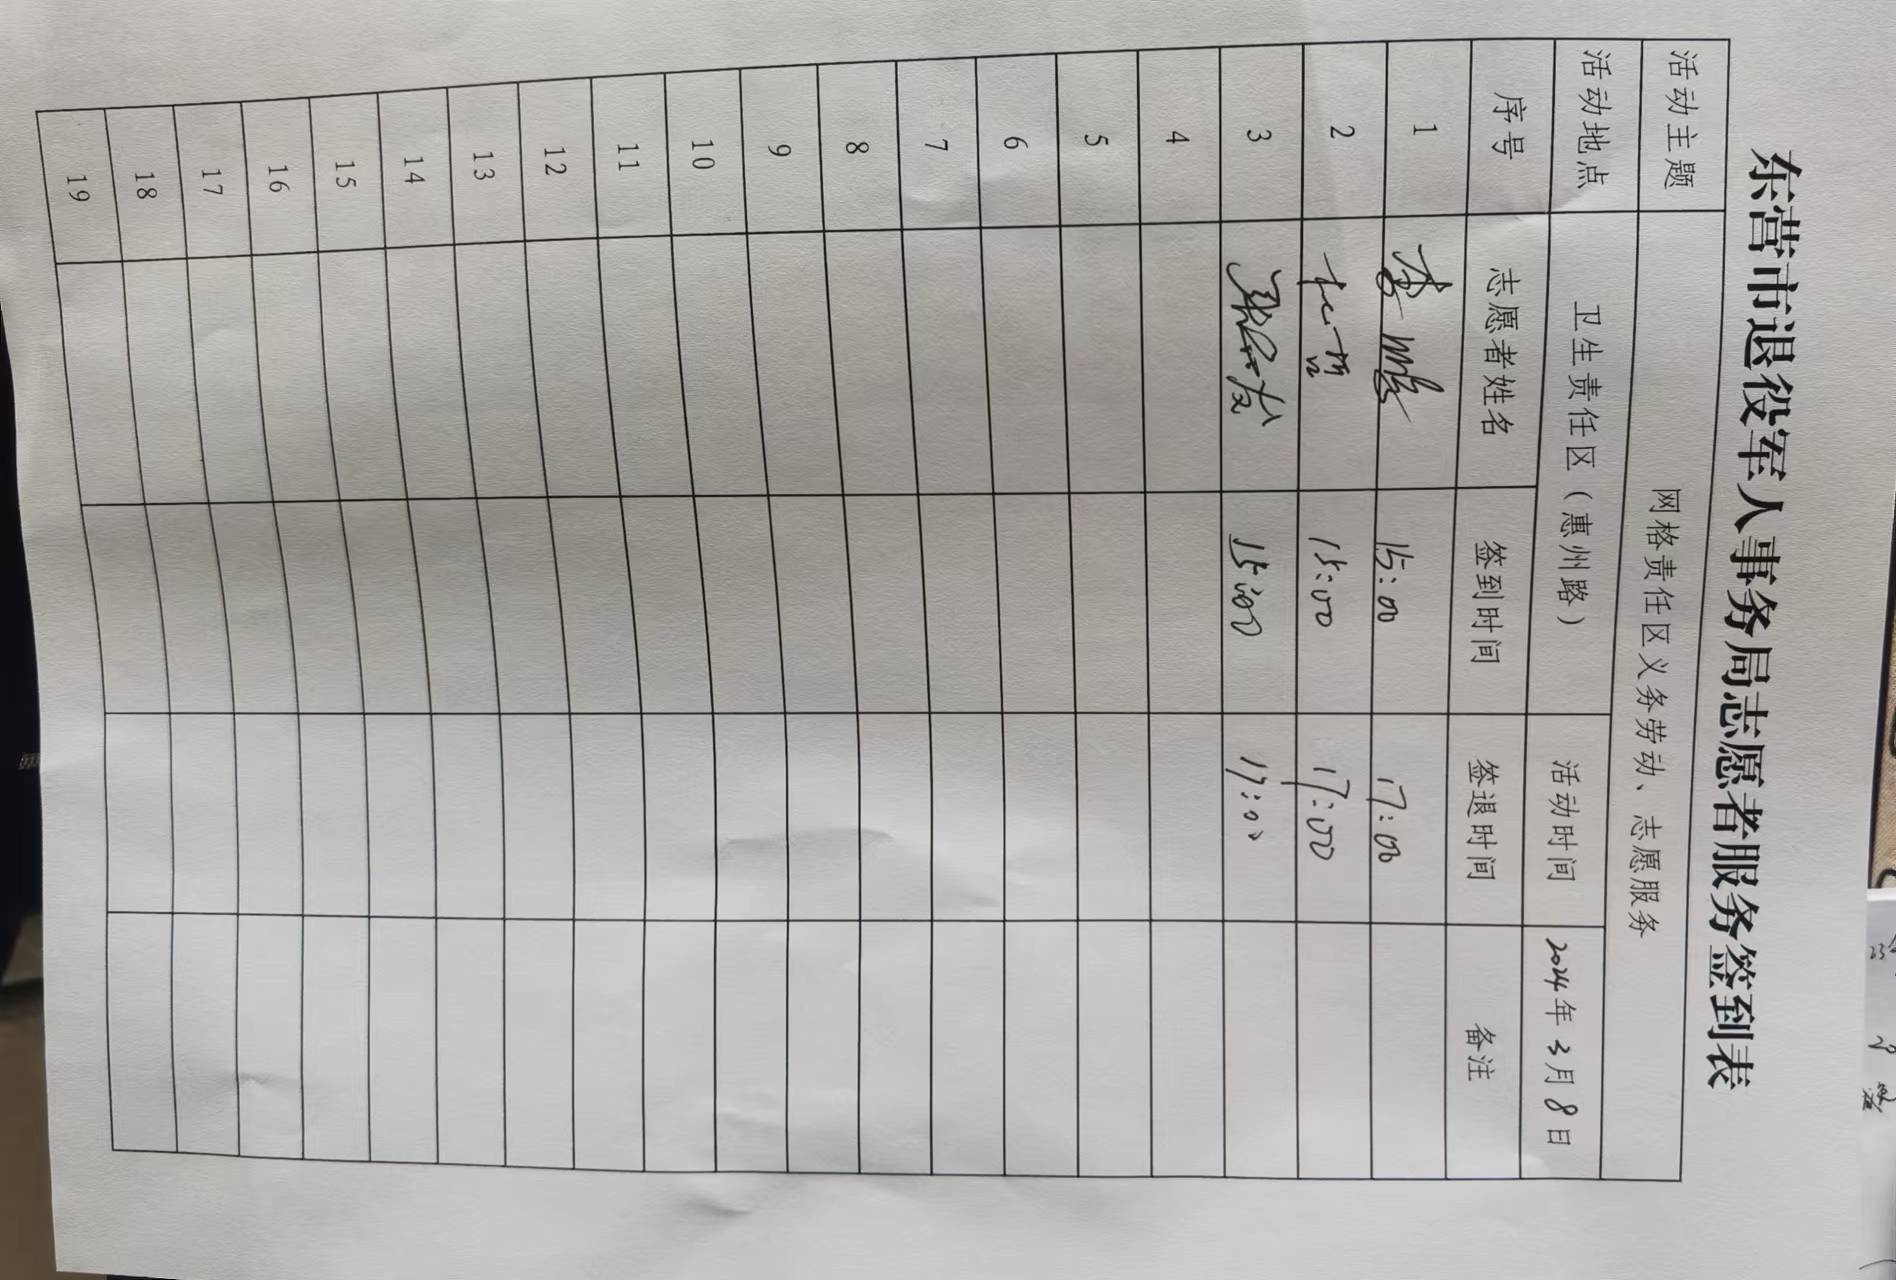 东营市退役军人事务局志愿者服务签到表
活动主题 网格责任区义务劳动、志愿服务
活动地点 卫生责任区（惠州路） 活动时间 2024年3月8日
序号 志愿者姓名 签到时间 签退时间 备注
1 李鹏 15:00 17:00
2 15:00 17:00
3 15:00 17:00
4
5
6
7
8
9
10
11
12
13
14
15
16
17
18
19